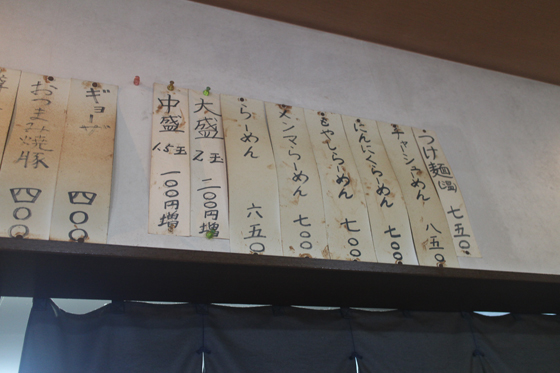 つけ麺(温) 七五〇
チャーシューめん 八五〇
にんにくらーめん 七〇〇
もやしらーめん 七〇〇
メンマらーめん 七〇〇
らーめん 六五〇
大盛 2玉 二〇〇円増
中盛 1.5玉 一〇〇円増
ギョーザ 四〇〇
おつまみ焼豚 四〇〇